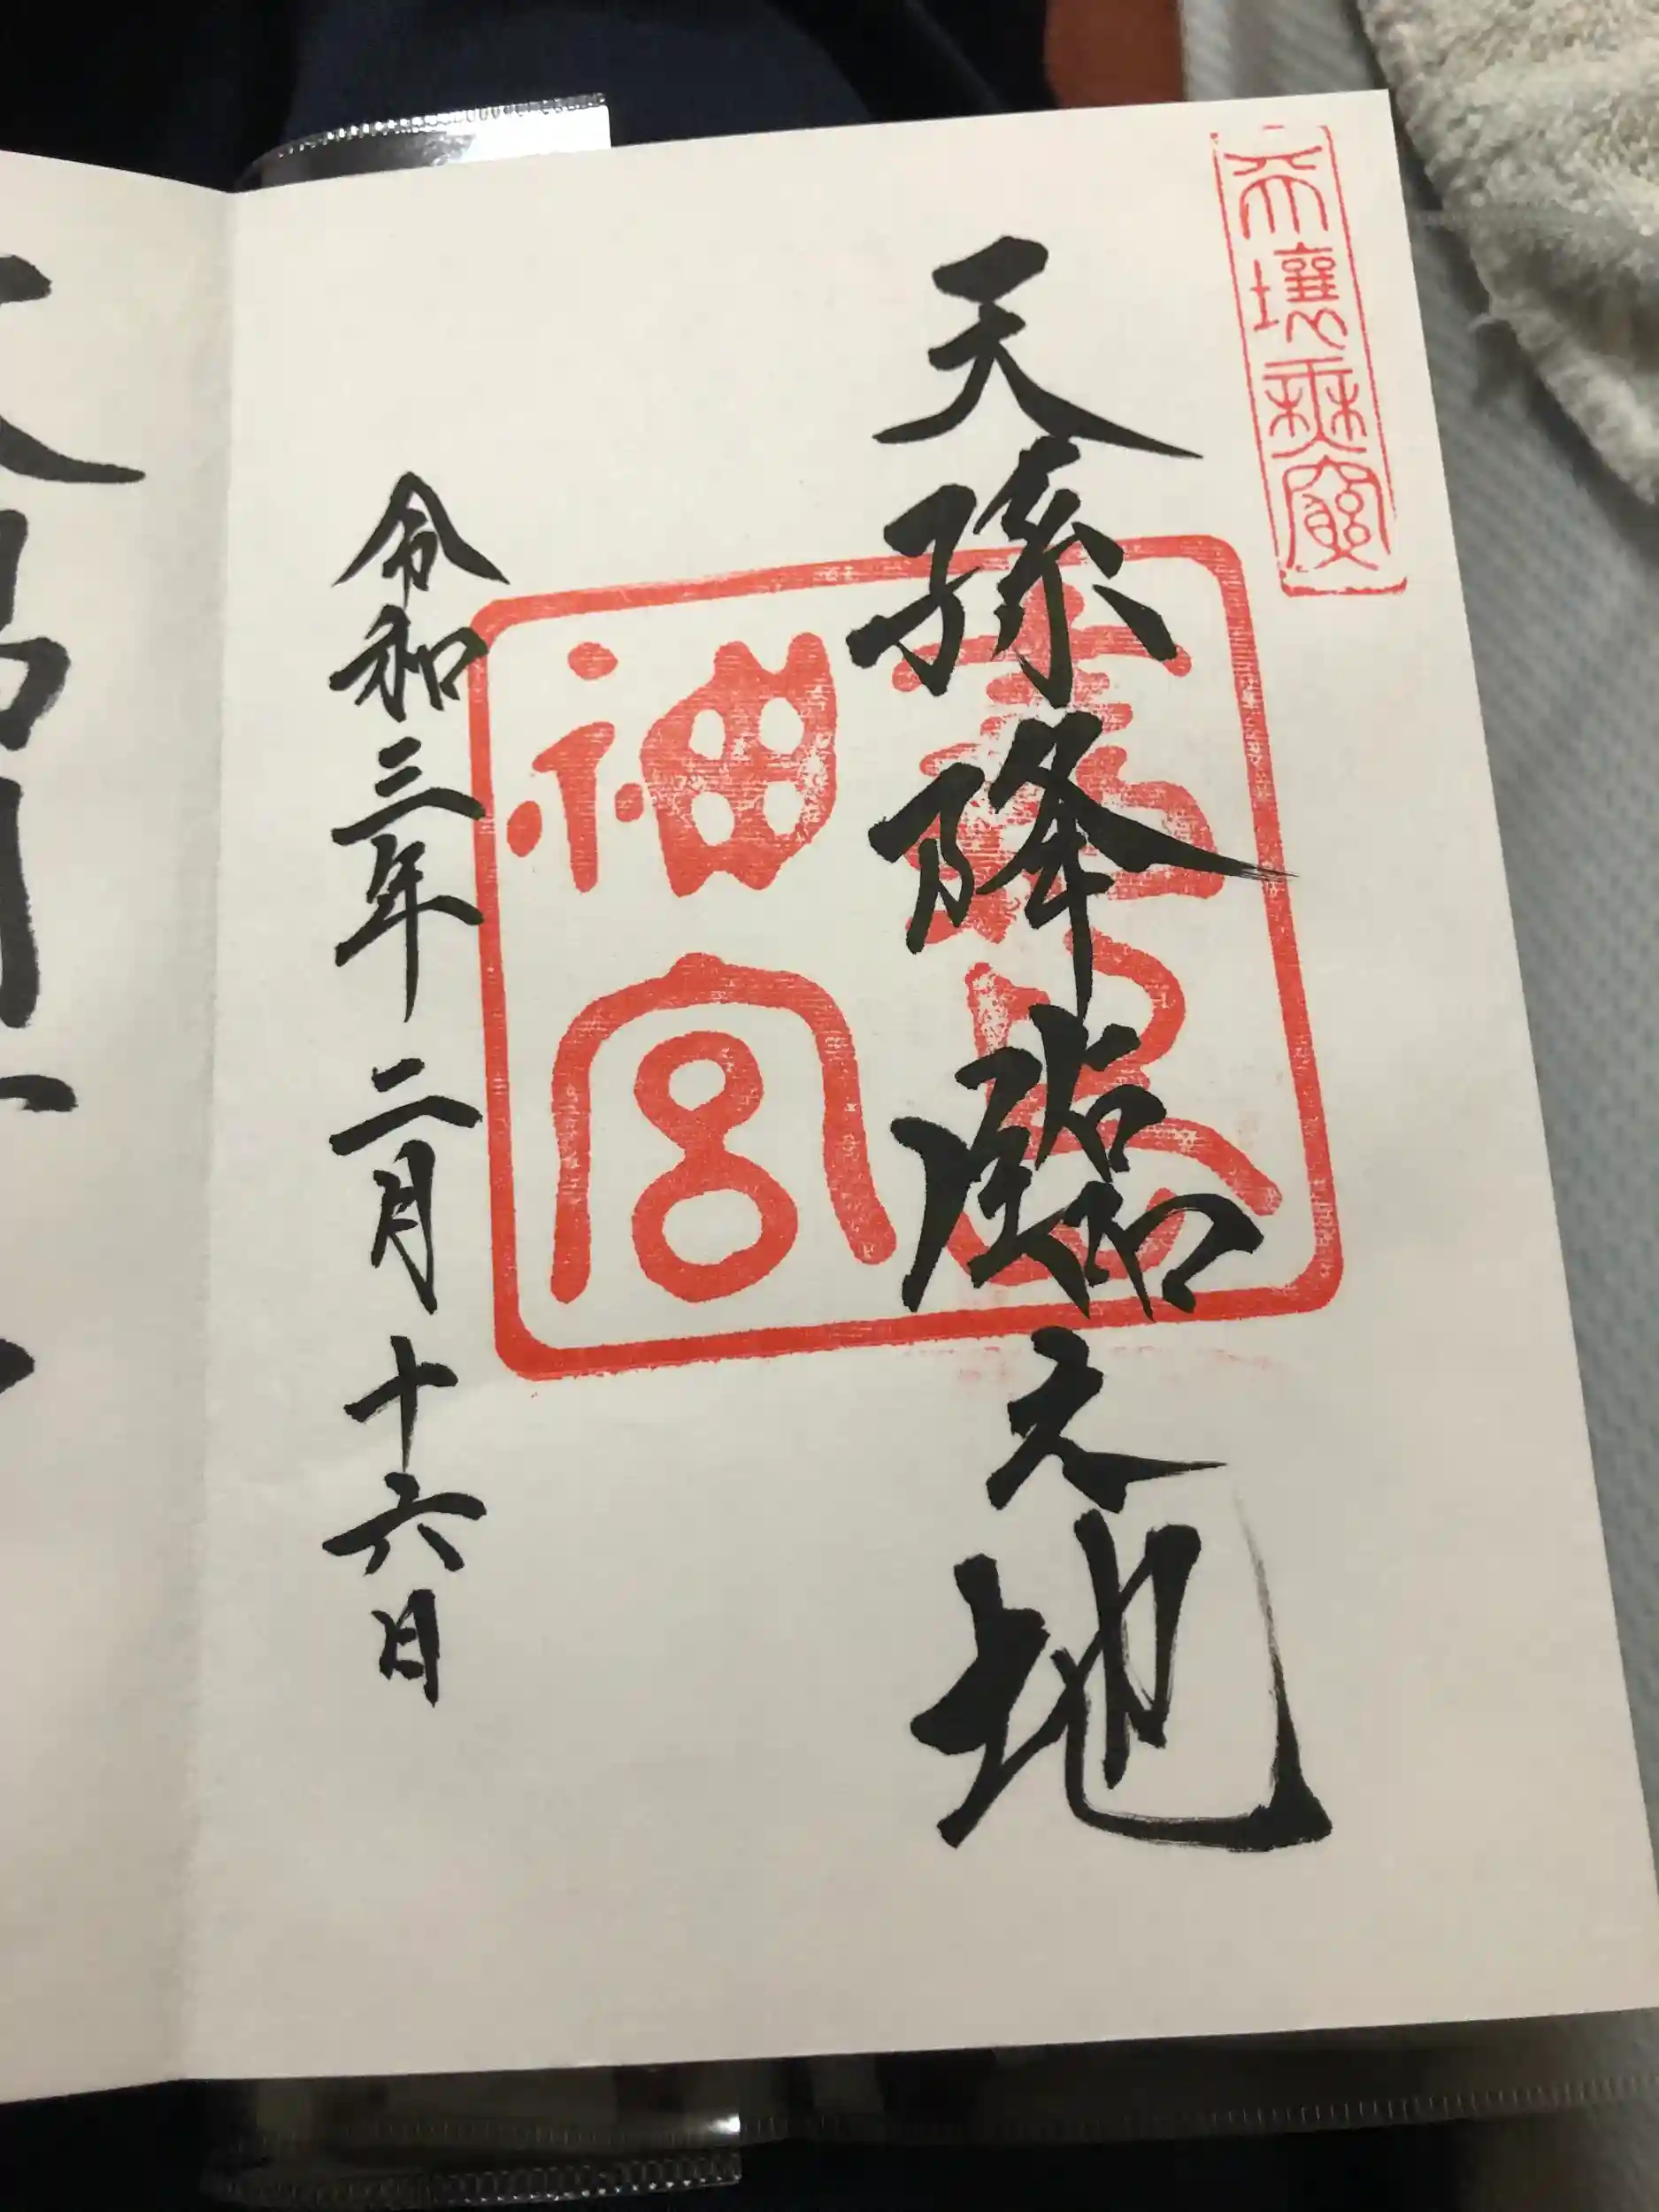 天壤無窮
天孫降臨之地
霧島神宮
令和三年二月十六日